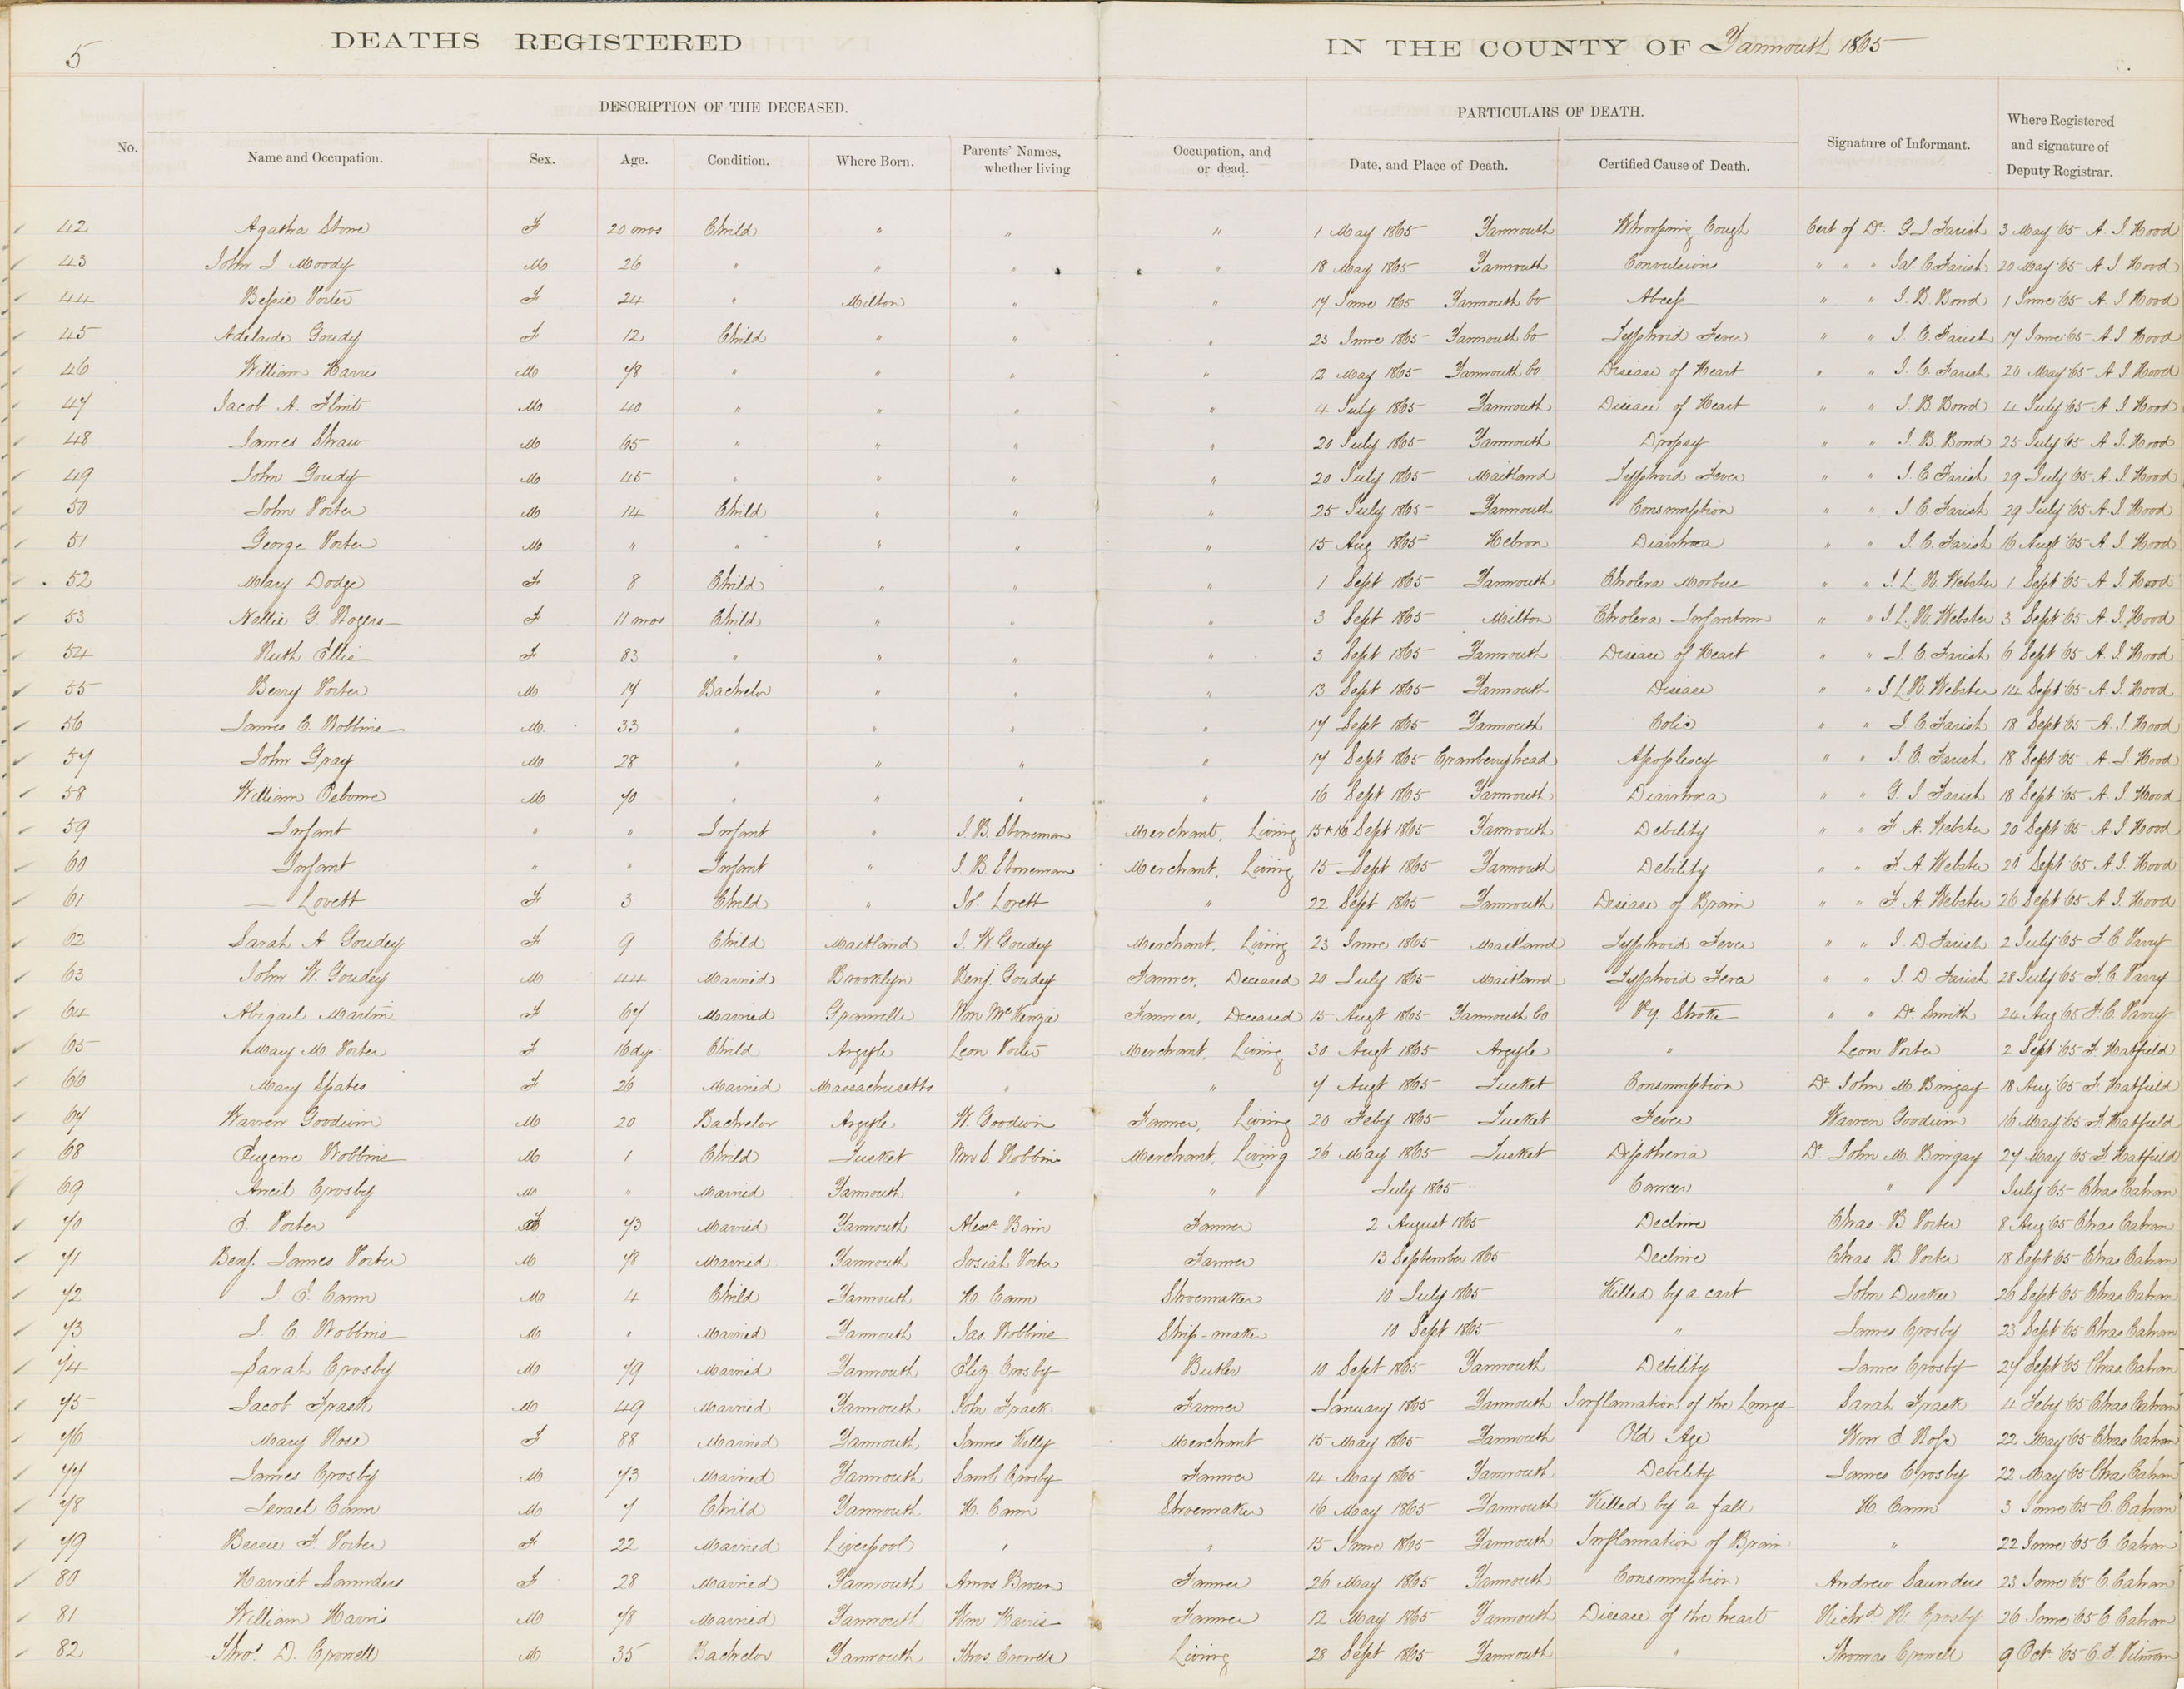 5
DEATHS REGISTERED IN THE COUNTY OF Yarmouth 1865
DESCRIPTION OF THE DECEASED. PARTICULARS OF DEATH.
No. Name and Occupation. Sex. Age. Condition. Where Born. Parents' Names, whether living Occupation, and or dead. Date, and Place of Death. Certified Cause of Death. Signature of Informant. Where Registered and signature of Deputy Registrar.
42 Agatha Stone F 20 mos Child " " " 1 May 1865 Yarmouth Whooping Cough Cert of Dr. G. J. Farish 3 May '65 A. J. Hood
43 John J Moody M 26 " " " " 18 May 1865 Yarmouth Convulsions " " " Jas. C. Farish 20 May '65 A. J. Hood
44 Bessie Porter F 24 " Milton " " 17 June 1865 Yarmouth Co Abcess " " J. B. Bond 1 June '65 A. J. Hood
45 Adelaide Goudy F 12 Child " " " 23 June 1865 Yarmouth Co Typhoid Fever " " J. C. Farish 17 June '65 A. J. Hood
46 William Harris M 78 " " " " 12 May 1865 Yarmouth Co Disease of Heart " " J. C. Farish 20 May '65 A. J. Hood
47 Jacob A. Flint M 40 " " " " 4 July 1865 Yarmouth Disease of Heart " " J. B. Bond 4 July '65 A. J. Hood
48 James Shaw M 65 " " " " 20 July 1865 Yarmouth Dropsy " " J. B. Bond 25 July '65 A. J. Hood
49 John Goudy M 45 " " " " 20 July 1865 Maitland Typhoid Fever " " J. C. Farish 29 July '65 A. J. Hood
50 John Porter M 14 Child " " " 25 July 1865 Yarmouth Consumption " " J. C. Farish 29 July '65 A. J. Hood
51 George Porter M " " " " " 15 Aug 1865 Hebron Diarrhoea " " J. C. Farish 16 Augt '65 A. J. Hood
52 Mary Dodge F 8 Child " " " 1 Sept 1865 Yarmouth Cholera Morbus " " J. L. R. Webster 1 Sept '65 A. J. Hood
53 Nellie G Rogers F 11 mos Child " " " 3 Sept 1865 Milton Cholera Infantum " " J. L. R. Webster 3 Sept '65 A. J. Hood
54 Ruth Ellis F 83 " " " " 3 Sept 1865 Yarmouth Disease of Heart " " J. C. Farish 6 Sept '65 A. J. Hood
55 Berry Porter M 17 Bachelor " " " 13 Sept 1865 Yarmouth Disease " " J. L. R. Webster 14 Sept '65 A. J. Hood
56 James C. Robbins M 33 " " " " 17 Sept 1865 Yarmouth Colic " " J. C. Farish 18 Sept '65 A. J. Hood
57 John Gray M 28 " " " " 17 Sept 1865 Cranberryhead Apoplexy " " J. C. Farish 18 Sept '65 A. J. Hood
58 William Osborne M 70 " " " " 16 Sept 1865 Yarmouth Diarrhoea " " G. J. Farish 18 Sept '65 A. J. Hood
59 Infant " " Infant " J. B. Stoneman Merchant, Living 15 & 16 Sept 1865 Yarmouth Debility " " F. A. Webster 20 Sept '65 A. J. Hood
60 Infant " " Infant " J. B. Stoneman Merchant, Living 15 Sept 1865 Yarmouth Debility " " F. A. Webster 20 Sept '65 A. J. Hood
61 — Lovett F 3 Child " Jo. Lovett " 22 Sept 1865 Yarmouth Disease of Brain " " F. A. Webster 26 Sept '65 A. J. Hood
62 Sarah A Goudey F 9 Child Maitland J. W Goudey Merchant, Living 23 June 1865 Maitland Typhoid Fever " " J. D. Farish 2 July '65 F. C. Parry
63 John W. Goudey M 44 Married Brooklyn Benj. Goudey Farmer, Deceased 20 July 1865 Maitland Typhoid Fever " " J. D. Farish 28 July '65 F. C. Parry
64 Abigail Martin F 67 Married Granville Wm McKenzie Farmer, Deceased 15 Augt 1865 Yarmouth Co Py. Stroke " " Dr. Smith 24 Aug '65 F. C. Parry
65 Mary M. Porter F 16 dys Child Argyle Leon Porter Merchant, Living 30 Augt 1865 Argyle " Leon Porter 2 Sept '65 F. Hatfield
66 Mary Spates F 26 Married Massachusetts " " 7 Augt 1865 Tusket Consumption Dr. John M. Bingay 18 Aug '65 F. Hatfield
67 Warren Goodwin M 20 Bachelor Argyle W. Goodwin Farmer, Living 20 Feby 1865 Tusket Fever Warren Goodwin 16 May '65 F. Hatfield
68 Eugene Robbins M 1 Child Tusket Wm S. Robbins Merchant, Living 26 May 1865 Tusket Diptheria Dr. John M. Bingay 27 May '65 F. Hatfield
69 Ancil Crosby M " Married Yarmouth " " July 1865 Cancer " July '65 Chas Cahan
70 E. Porter F 73 Married Yarmouth Alexr. Bain Farmer 2 August 1865 Decline Chas. B Porter 8 Aug '65 Chas Cahan
71 Benj. James Porter M 78 Married Yarmouth Josiah Porter Farmer 13 September 1865 Decline Chas B. Porter 18 Sept '65 Chas Cahan
72 J. E. Cann M 4 Child Yarmouth H. Cann Shoemaker 10 July 1865 Killed by a cart John Durkee 26 Sept '65 Chas Cahan
73 J. C. Robbins M " Married Yarmouth Jas. Robbins Ship-maker 10 Sept 1865 " James Crosby 23 Sept '65 Chas Cahan
74 Sarah Crosby M 79 Married Yarmouth Eliz. Crosby Butler 10 Sept 1865 Yarmouth Debility James Crosby 27 Sept '65 Chas Cahan
75 Jacob Trask M 49 Married Yarmouth John Trask Farmer January 1865 Yarmouth Inflamation of the Lungs Sarah Trask 4 Feby '65 Chas Cahan
76 Mary Rose F 88 Married Yarmouth James Kelly Merchant 15 May 1865 Yarmouth Old Age Wm E Rose 22 May '65 Chas Cahan
77 James Crosby M 73 Married Yarmouth Saml Crosby Farmer 14 May 1865 Yarmouth Debility James Crosby 22 May '65 Chas Cahan
78 Israel Cann M 7 Child Yarmouth H. Cann Shoemaker 16 May 1865 Yarmouth Killed by a fall H. Cann 3 June '65 C. Cahan
79 Bessie F. Porter F 22 Married Liverpool " " 15 June 1865 Yarmouth Inflamation of Brain " 22 June '65 C. Cahan
80 Harriet Saunders F 28 Married Yarmouth Amos Brown Farmer 26 May 1865 Yarmouth Consumption Andrew Saunders 23 June '65 C. Cahan
81 William Harris M 78 Married Yarmouth Wm Harris Farmer 12 May 1865 Yarmouth Disease of the heart Richd. R. Crosby 26 June '65 C Cahan
82 Thos. D. Crowell M 35 Bachelor Yarmouth Thos Crowell Living 28 Sept 1865 Yarmouth " Thomas Crowell 9 Oct '65 C. F. Pitman